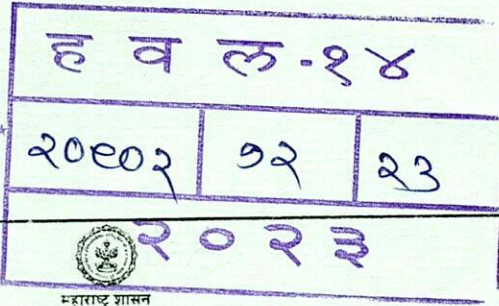 ह व ल - १४
२०९०२ १२ २३
२०२३
महाराष्ट्र शासन